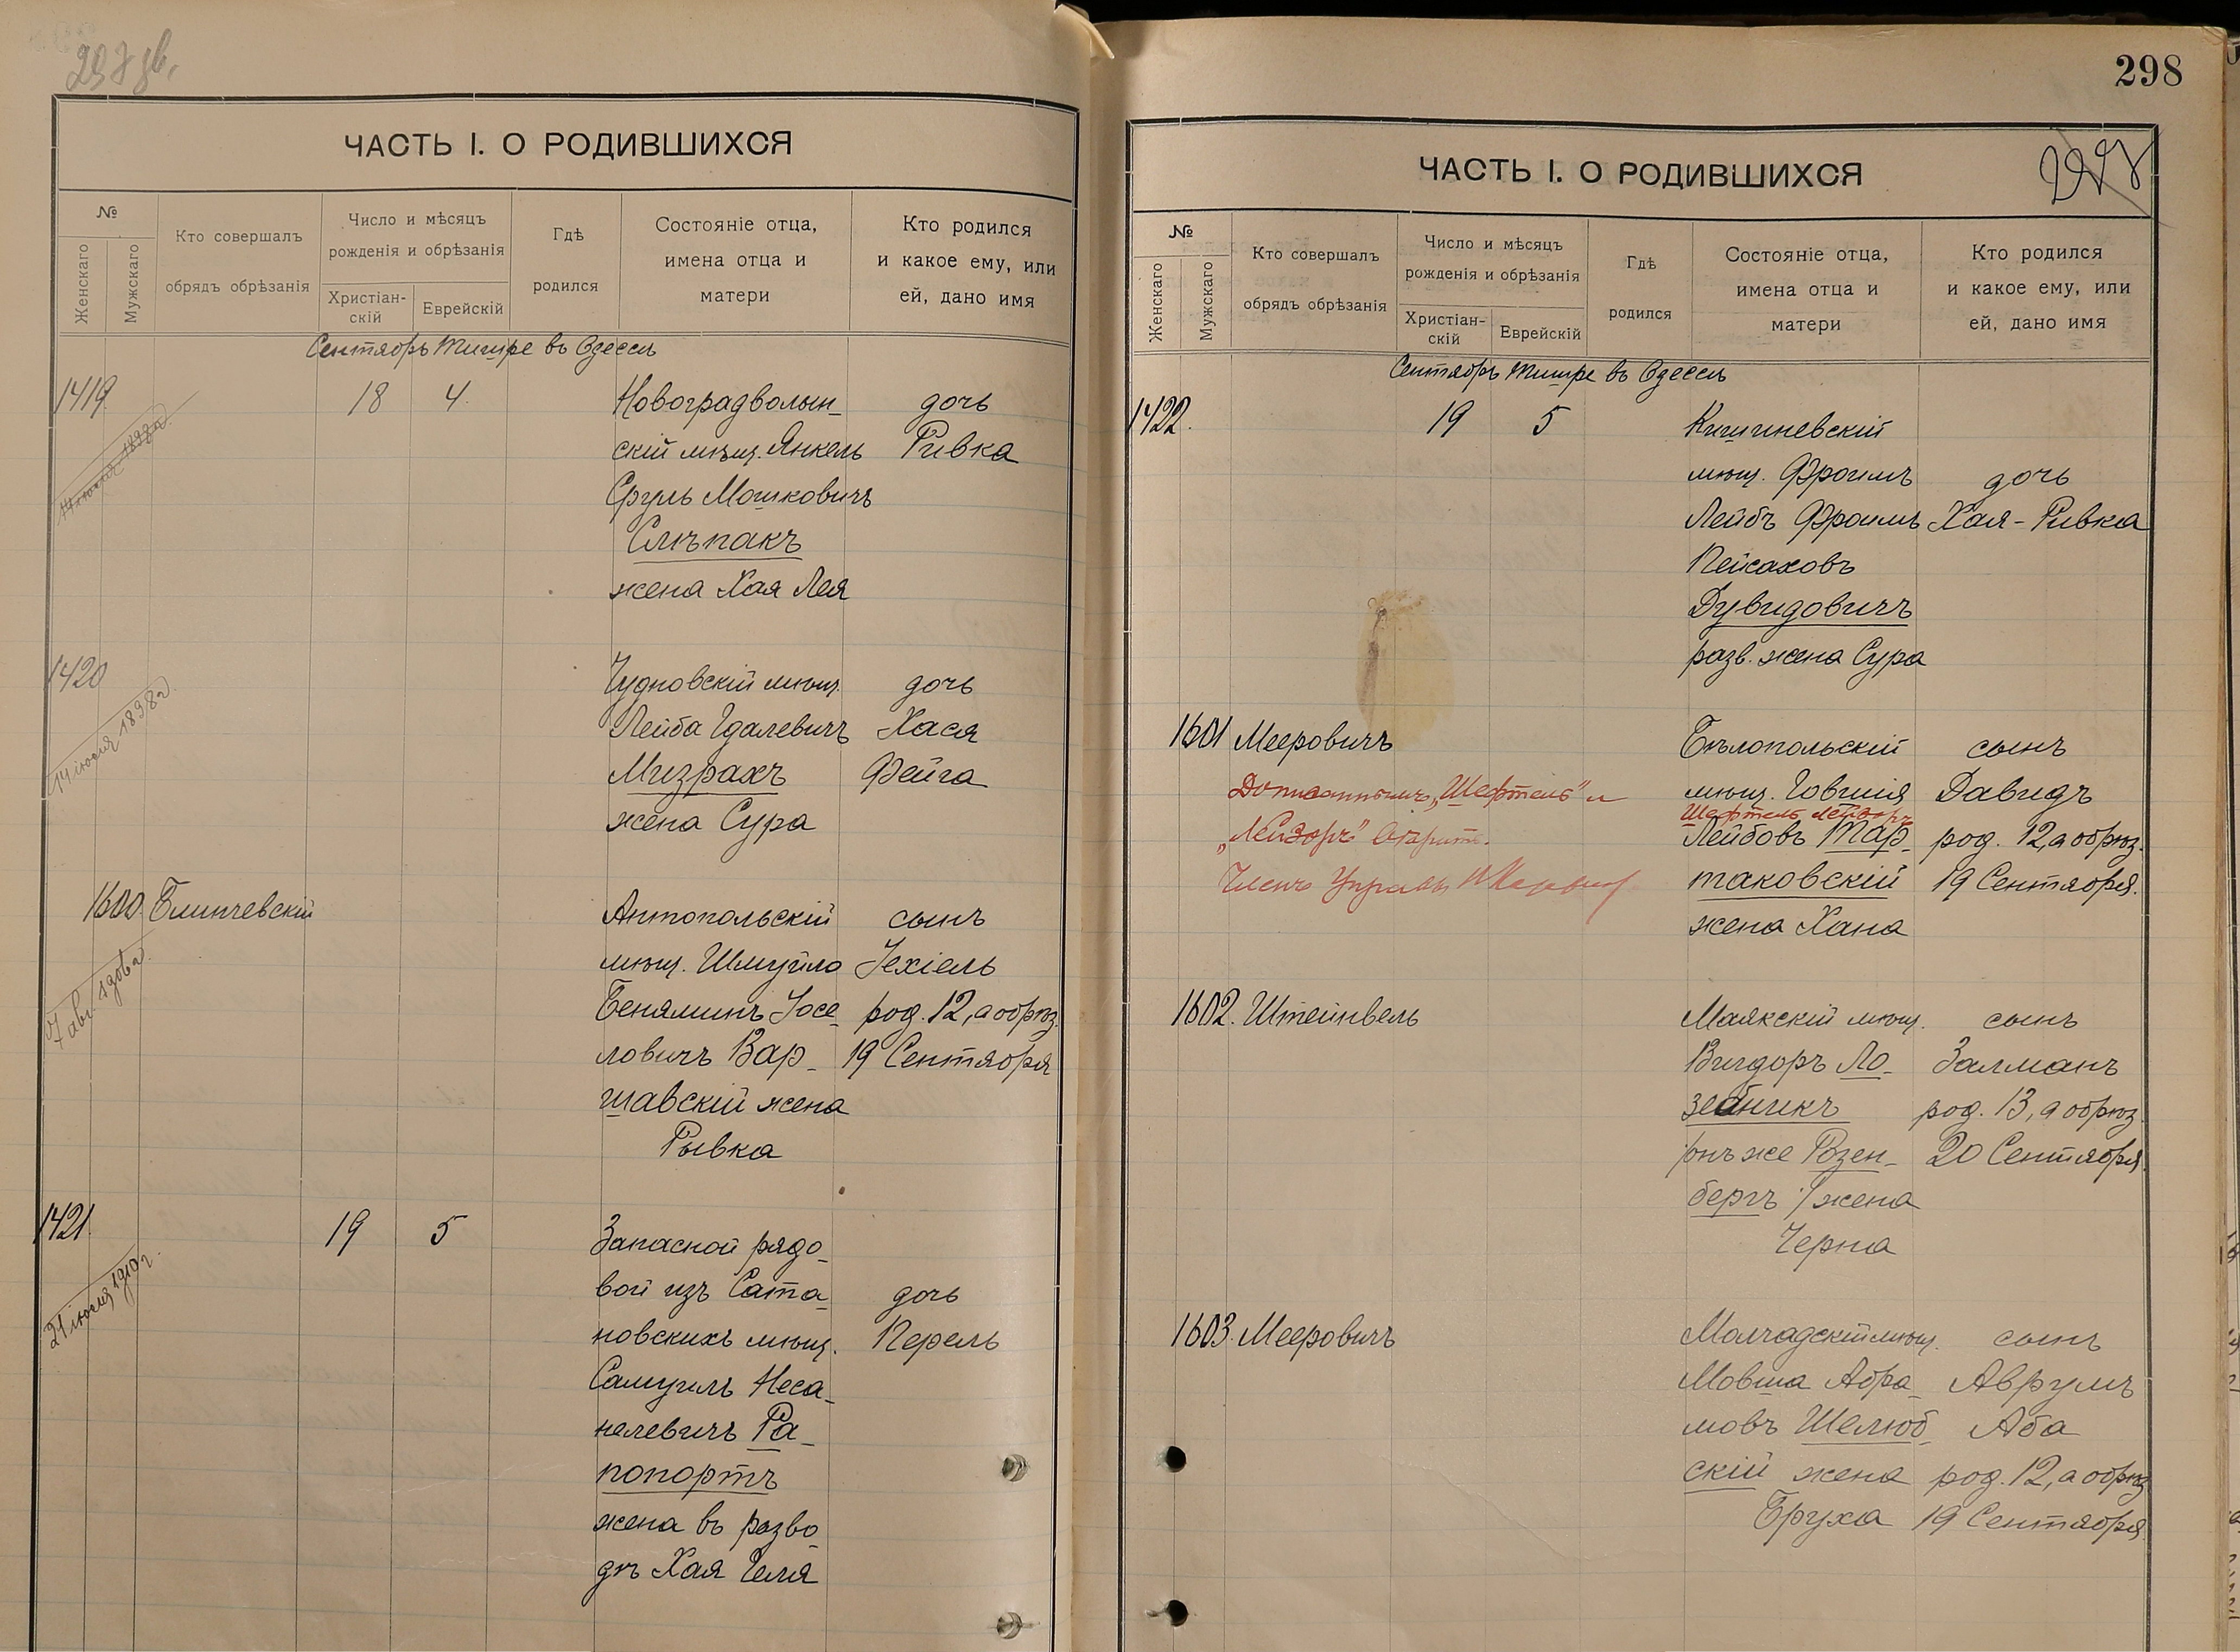 297 об.
ЧАСТЬ I. О РОДИВШИХСЯ
№
Женскаго
Мужскаго
Кто совершалъ
обрядъ обрѣзанія
Число и мѣсяцъ
рожденія и обрѣзанія
Христіан-
скій
Еврейскій
Гдѣ
родился
Состояніе отца,
имена отца и
матери
Кто родился
и какое ему, или
ей, дано имя
Сентябрь Тишре въ Одессѣ
1419 18 4. Новоградволын- дочь
скій мѣщ. Янкель Ривка
Сруль Мошковичъ
Слѣпакъ
жена Хая Лея
1420 Чудновскій мѣщ. дочь
14 іюля 1898 г. Лейба Гдалевичъ Хася
Мизрахъ Фейга
жена Сура
1600. Блинчевскій Антопольскій сынъ
мѣщ. Шмуйло Іехіель
Беняминъ Іосе- род. 12, а обрѣз.
ловичъ Вар- 19 Сентября
шавскій жена
Рывка
1421. 19 5 Запасной рядо-
21 іюля 1910 г. вой изъ Сата- дочь
новскихъ мѣщ. Перель
Самуилъ Неса-
нелевичъ Ра-
попортъ
жена въ разво-
дѣ Хая Геля
298
ЧАСТЬ I. О РОДИВШИХСЯ
№
Женскаго
Мужскаго
Кто совершалъ
обрядъ обрѣзанія
Число и мѣсяцъ
рожденія и обрѣзанія
Христіан-
скій
Еврейскій
Гдѣ
родился
Состояніе отца,
имена отца и
матери
Кто родился
и какое ему, или
ей, дано имя
Сентябрь Тишре въ Одессѣ
1422. 19 5 Кишиневскій
мѣщ. Фроимъ дочь
Лейбъ Фроимъ Хая-Ривка
Пейсаховъ
Дувидовичъ
разв. жена Сура
1601 Мееровичъ Бѣлопольскій сынъ
Дописаннымъ „Шефтель" и мѣщ. Іовшія Давидъ
Шефтель Лейзоръ
„Лейзоръ" Лейбовъ Тар- род. 12, а обрѣз.
Членъ Управы таковскій 19 Сентября.
жена Хана
1602. Штейнвель Маякскій мѣщ. сынъ
Вигдоръ Ло- Залманъ
зейникъ род. 13, а обрѣз.
/онъ же Розен- 20 Сентября.
бергъ / жена
Черна
1603. Мееровичъ Молчадскій мѣщ. сынъ
Мовша Абра- Аврумъ
мовъ Шелюб- Аба
скій жена род. 12, а обрѣз
Бруха 19 Сентября.